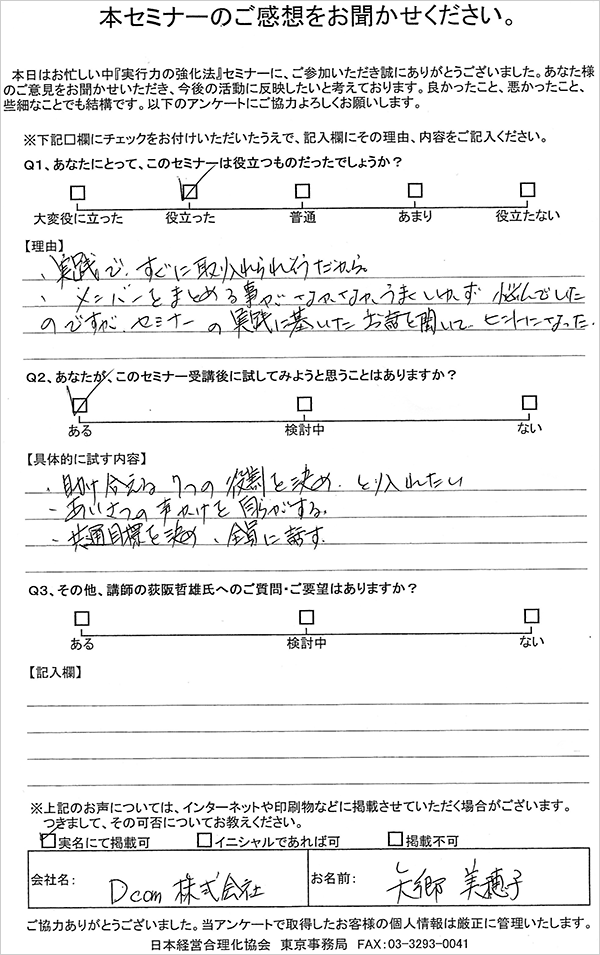 本セミナーのご感想をお聞かせください。
本日はお忙しい中『実行力の強化法』セミナーに、ご参加いただき誠にありがとうございました。あなた様
のご意見をお聞かせいただき、今後の活動に反映したいと考えております。良かったこと、悪かったこと、
些細なことでも結構です。以下のアンケートにご協力よろしくお願いします。
※下記□欄にチェックをお付けいただいたうえで、記入欄にその理由、内容をご記入ください。
Q1、あなたにとって、このセミナーは役立つものだったでしょうか？
大変役に立った 役立った 普通 あまり 役立たない
【理由】
・実践で、すぐに取り入れられそうだから。
・メンバーをまとめる事がなかなかうまくいかず 悩んでした
のですが、セミナーの実践に基いたお話を聞いて、ヒントになった。
Q2、あなたが、このセミナー受講後に試してみようと思うことはありますか？
ある 検討中 ない
【具体的に試す内容】
・助け合える 7つの役割を決め、とり入れたい
・あいさつの声かけを自らがする。
・共通目標を決め、全員に話す。
Q3、その他、講師の荻阪哲雄氏へのご質問・ご要望はありますか？
ある 検討中 ない
【記入欄】
※上記のお声については、インターネットや印刷物などに掲載させていただく場合がございます。
つきまして、その可否についてお教えください。
実名にて掲載可 イニシャルであれば可 掲載不可
会社名： Dcom 株式会社 お名前： 矢郷 美穂子
ご協力ありがとうございました。当アンケートで取得したお客様の個人情報は厳正に管理いたします。
日本経営合理化協会 東京事務局 FAX：03-3293-0041